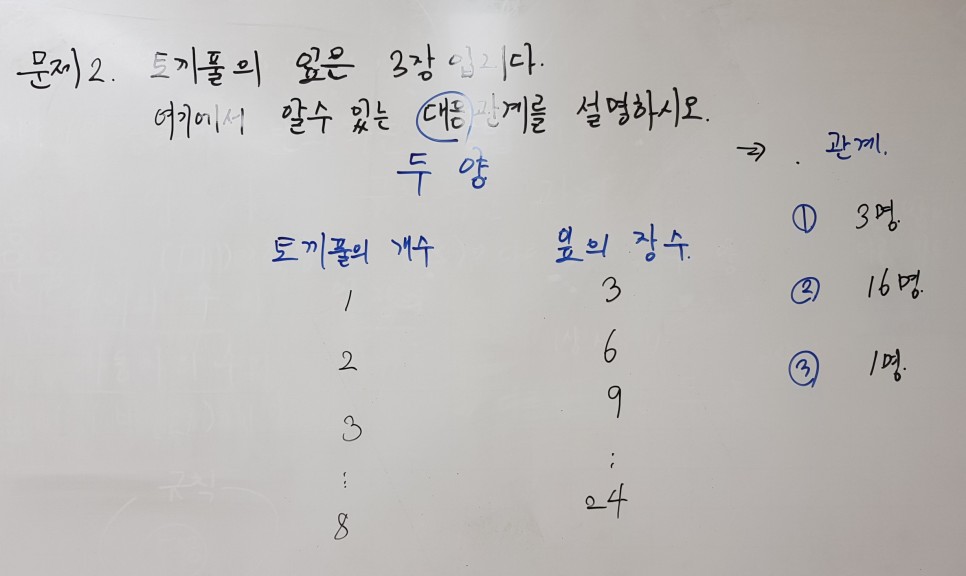 문제 2. 토끼풀의 잎은 3장입니다.
여기에서 알수 있는 대응관계를 설명하시오.
두 양
→ . 관계.
토끼풀의 개수 잎의 장수.
1 3
2 6
3 9
⋮ ⋮
8 24
① 3명.
② 16명.
③ 1명.